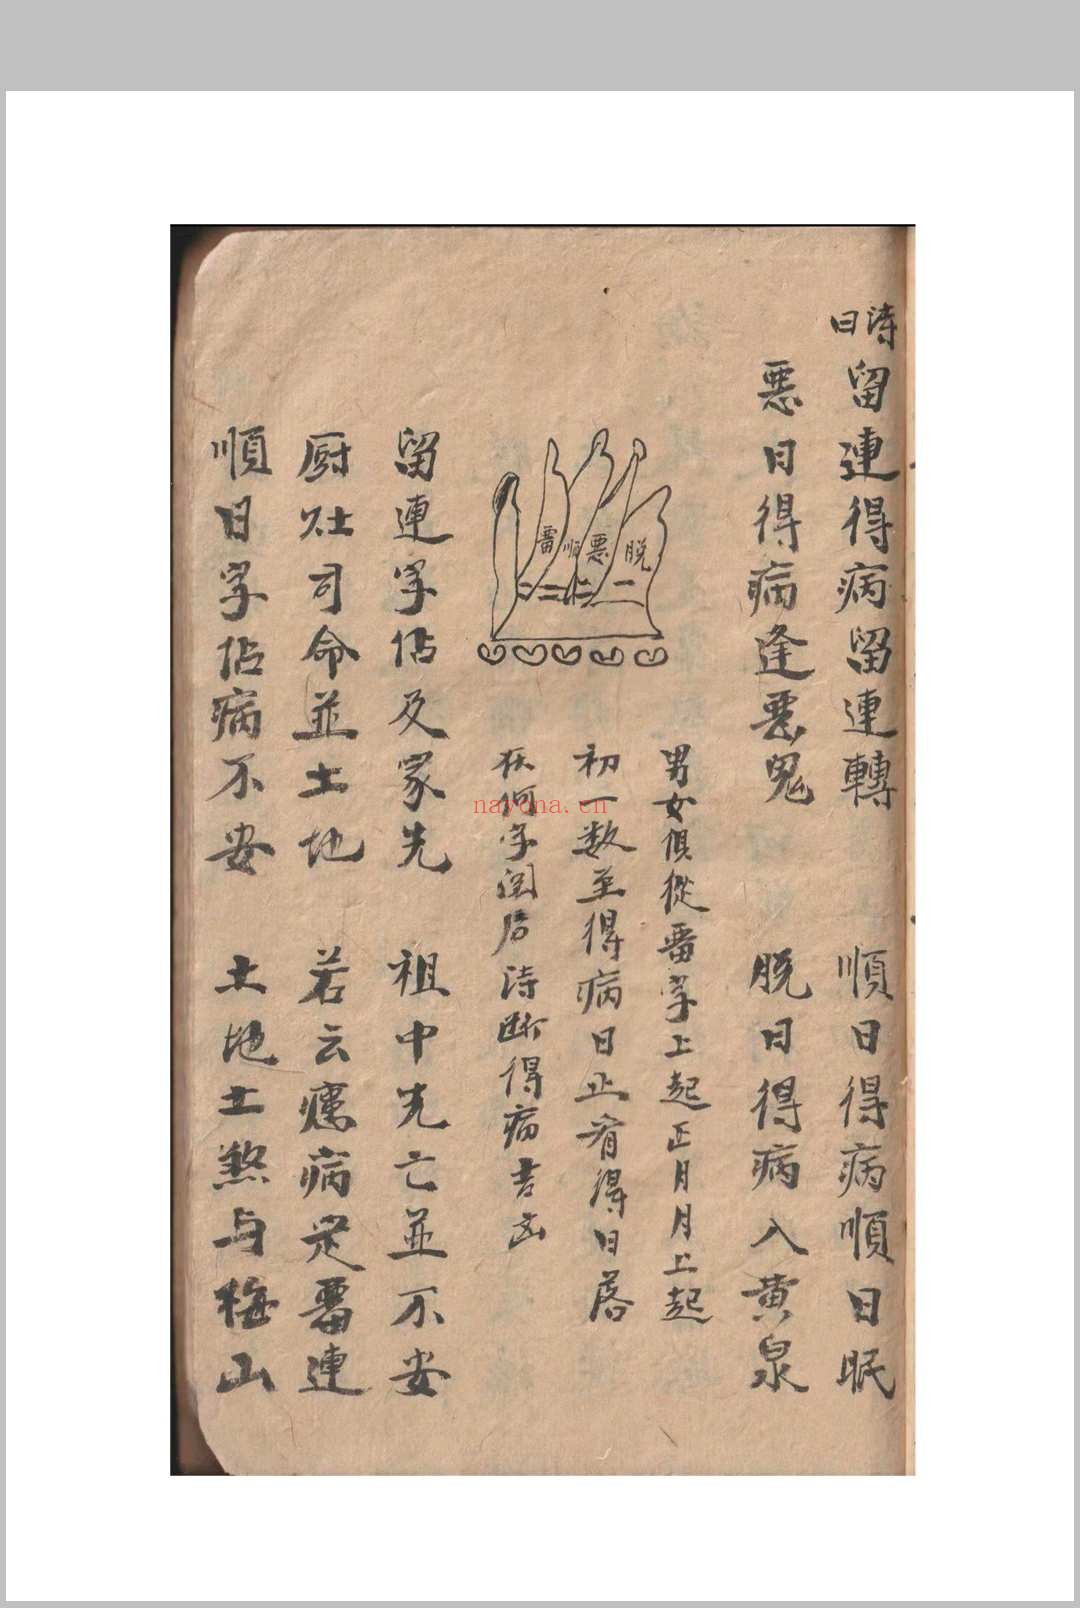 詩曰
留連得病留連轉 順日得病順日眠
惡日得病逢惡鬼 脱日得病入黄泉
畱 順 惡 脱
男女俱從畱字上起正月月上起
初一数至得病日止看得日落
在何字閱后詩断得病吉凶
留連字佔及家先 祖中先亡並不安
厨灶司命並土地 若云病定畱連
順日字佔病不安 土地土煞与梅山
nayona.cn